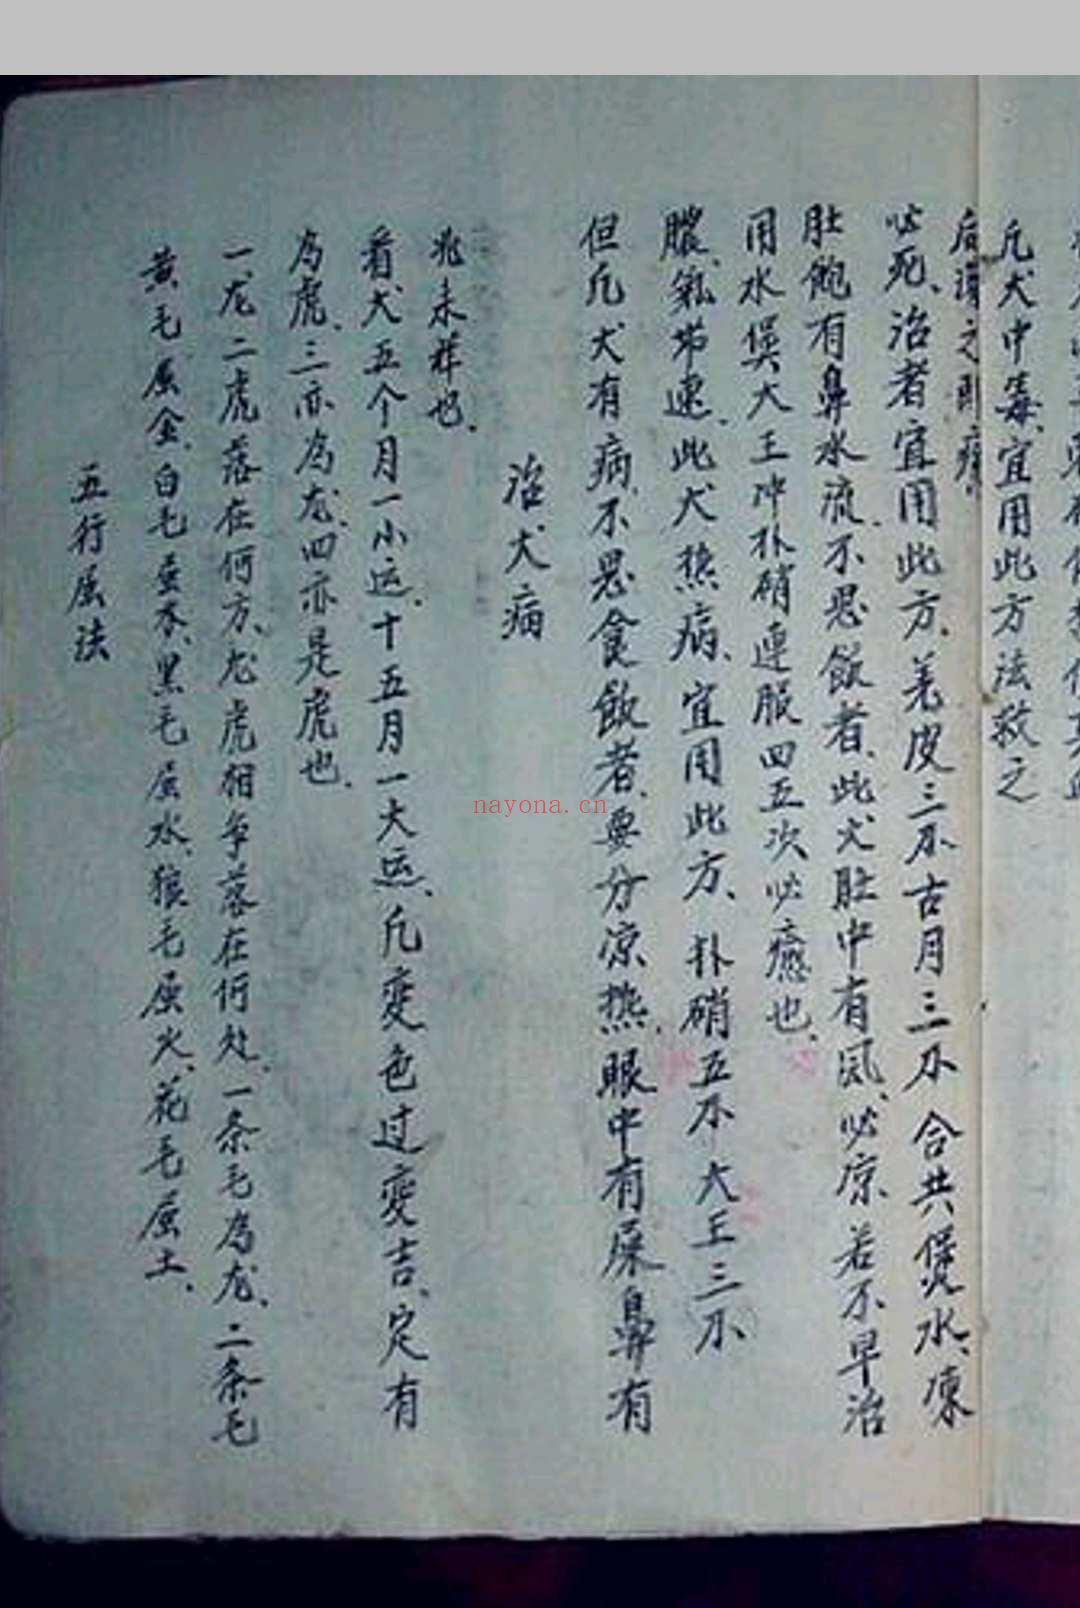 五行属法
黄毛属金、白毛属木、黑毛属水、狼毛属火、花毛属土、
一龙二虎落在何方、龙虎相争落在何处、一条毛为龙、二条毛
为虎、三亦为龙、四亦是虎也、
看犬五个月一小运、十五月一大运、凡变色过变吉、定有
兆未祥也、
治犬病
但凡犬有病、不思食飲者、要分凉热、眼中有屎鼻有
膿、氣常速、此犬热病、宜用此方、朴硝五不大王三不
用水煲大王冲朴硝連服四五次必癒也、
肚飽有鼻水流、不思飯者、此犬肚中有风、必凉若不早治
必死、治者宜用此方、羌皮三不古月三不合共煲水、凍
后灌之即癒
凡犬中毒、宜用此方法救之
nayona.cn